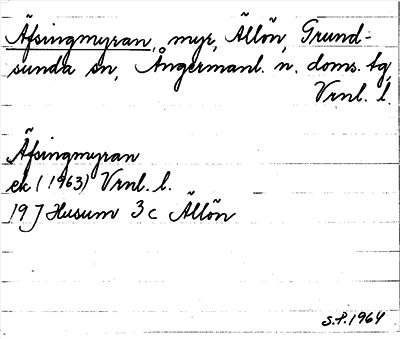 Äfsingmyran, myr, Ällön, Grund-
sunda sn, Ångermanl. n. doms. tg,
Vrnl. l.
Äfsingmyran
ek (1963) Vrnl. l.
19 J Husum 3c Ällön
S.P. 1964